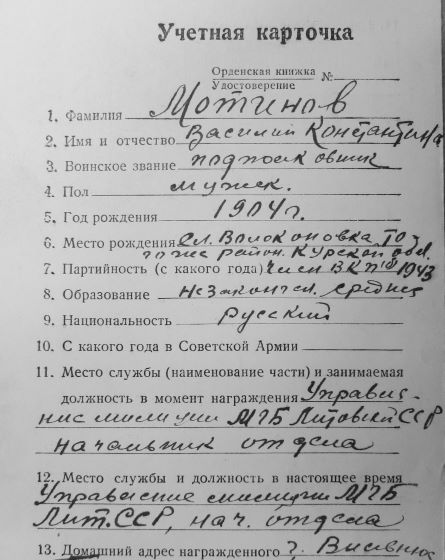 Учетная карточка
Орденская книжка №
Удостоверение
1. Фамилия Мотинов
2. Имя и отчество Василий Константин
3. Воинское звание подполковник
4. Пол мужск.
5. Год рождения 1904 г.
6. Место рождения Сл. Волоконовка То
го же район. Курской обл.
7. Партийность (с какого года) член ВКП(б) 1943
8. Образование незакончен. среднее
9. Национальность русский
10. С какого года в Советской Армии
11. Место службы (наименование части) и занимаемая
должность в момент награждения Управле-
ние милиции МГБ Литовской ССР
начальник отдела
12. Место службы и должность в настоящее время
Управление милиции МГБ
Лит. ССР, нач. отдела
13. Домашний адрес награжденного г. Вильнюс